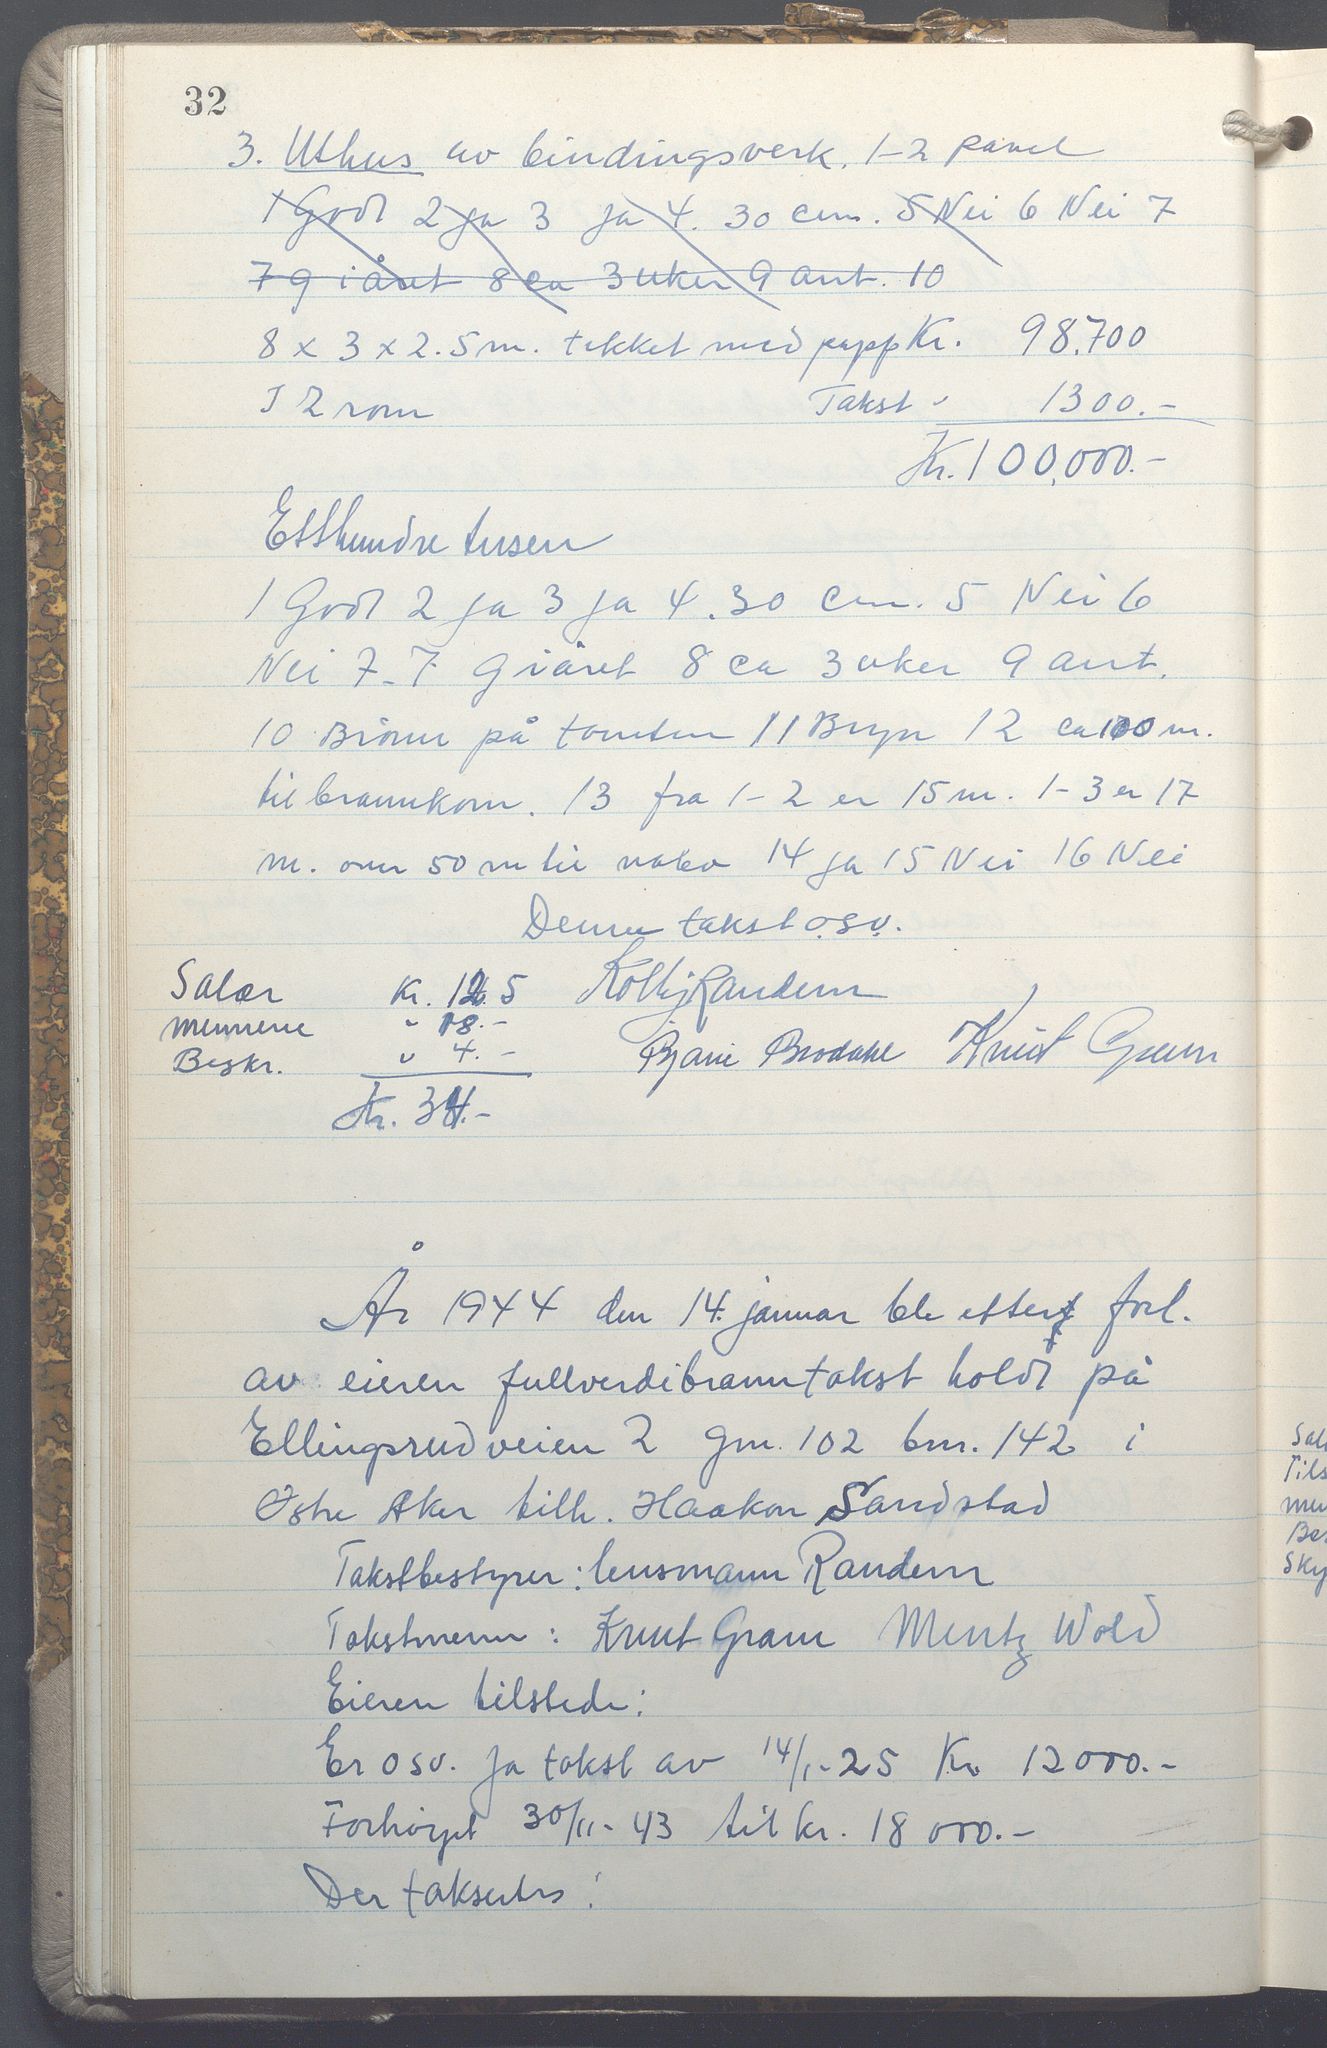 32
3. Uthus av bindingsverk. 1-2 panel
1 Godt 2 ja 3 ja 4. 30 cm. 5 Nei 6 Nei 7
7 9 i året 8 ca 3 uker 9 ant. 10
8 x 3 x 2.5 m. tekket med papp Kr. 98.700
I 2 rom Takst " 1300.-
Kr. 100,000.-
Etthundre tusen
1 Godt 2 ja 3 ja 4. 30 cm. 5 Nei 6
Nei 7-7 9 i året 8 ca 3 uker 9 ant.
10 Brönn på tomten 11 Bryn 12 ca 100 m.
til brannkom. 13 fra 1-2 er 15 m. 1-3 er 17
m. over 50 m til nabo 14 ja 15 Nei 16 Nei
Denne takst o.s.v.
Salær Kr. 12.5 Kolbj Randem
mennene " 18.-
Beskr. " 4.- Bjarne Brodahl Knut Gram
Kr. 34.-
År 1944 den 14. januar ble etter forl.
av eieren fullverdibranntakst holdt på
Ellingsrudveien 2 gnr. 102 bnr. 142 i
Østre Aker tilh. Haakon Sandstad
Takstbestyrer: lensmann Randem
Takstmenn: Knut Gram Mentz Wold
Eieren tilstede:
Er osv. Ja takst av 14/1-25 Kr. 12000.-
Forhöyet 30/11-43 til kr. 18 000.-
Der takseres:
Sal
Tils
men
Bes
Sky